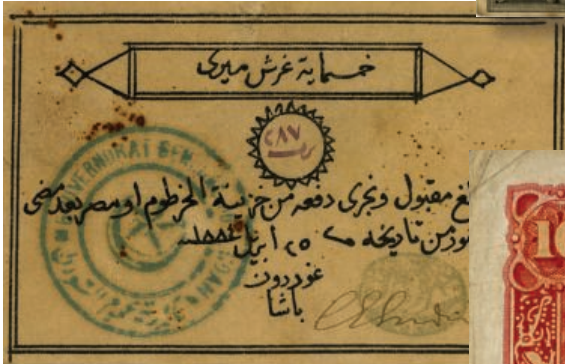 خمسماية غرش ميرى
٢٨٧
مقبول ونجرى دفعه من خزينة الخرطوم او مصر بعد مضى
من تاريخه ٢٥ ابريل ١٨٨٤
غوردون
باشا
10